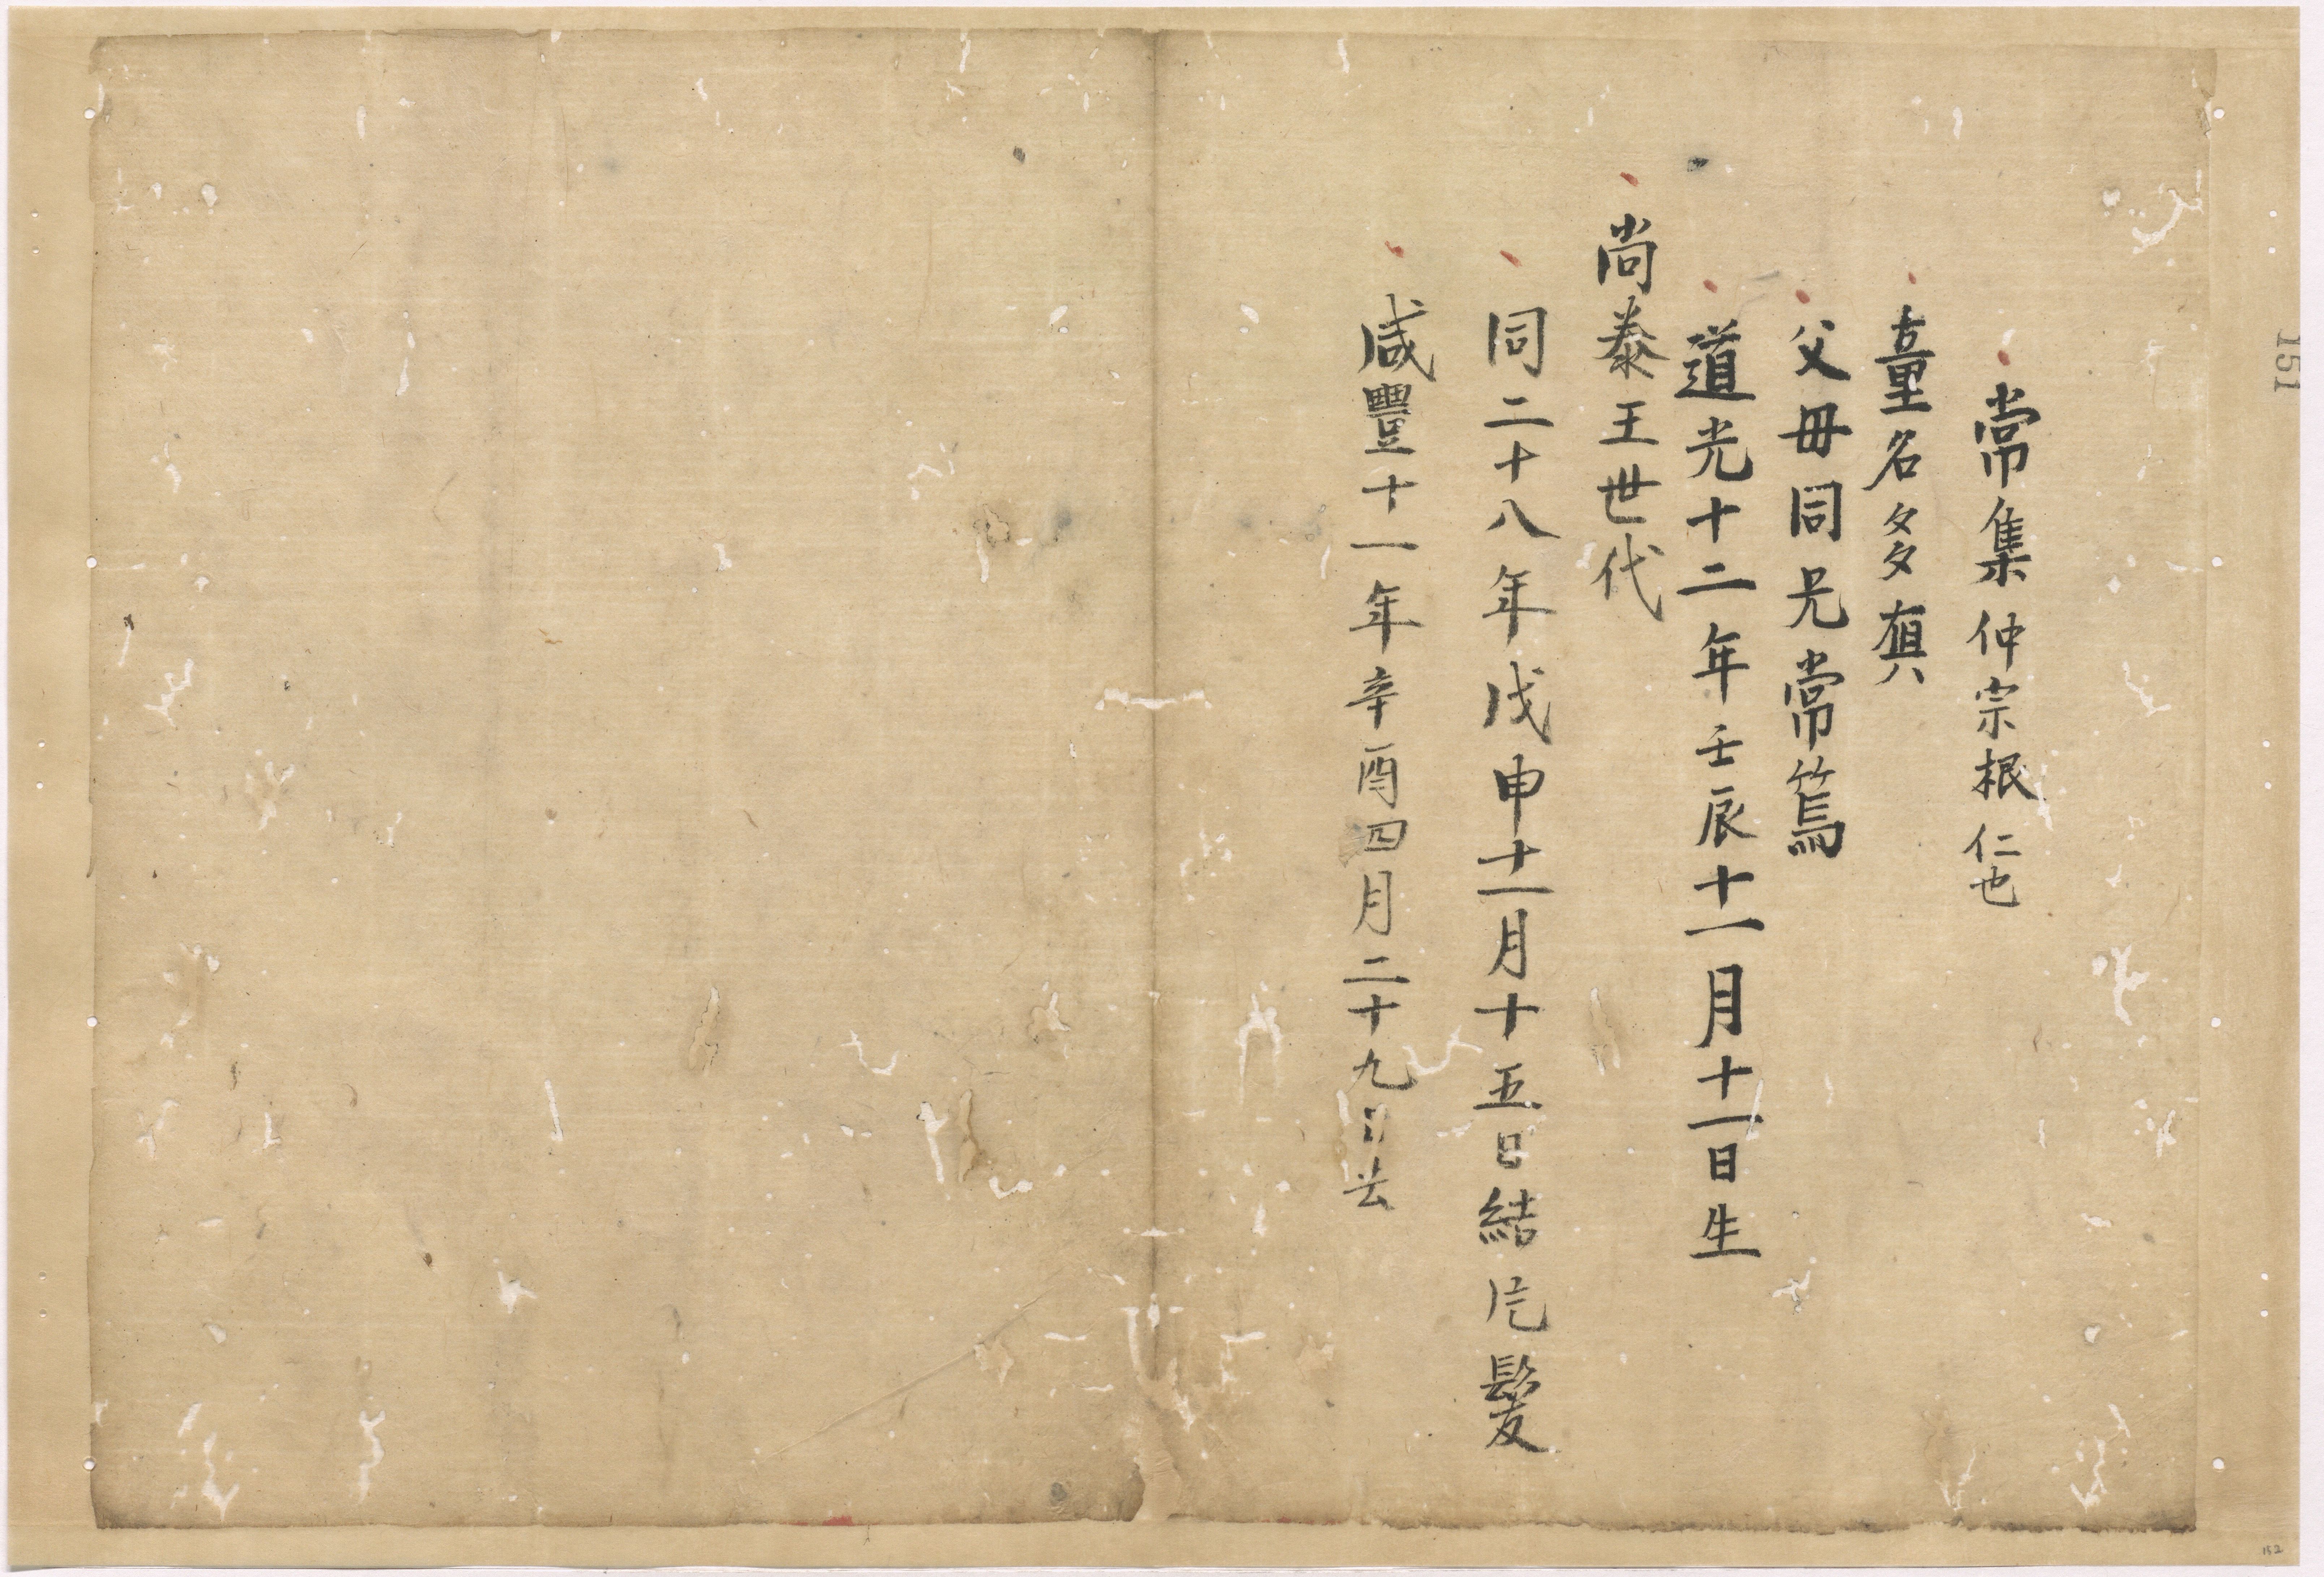 常集仲宗根仁也
童名多嘉
父母同兄常篤
道光十二年壬辰十一月十一日生
尚泰王世代
同二十八年戊申十一月十五日結片髪
咸豐十一年辛酉四月二十九日
151
152